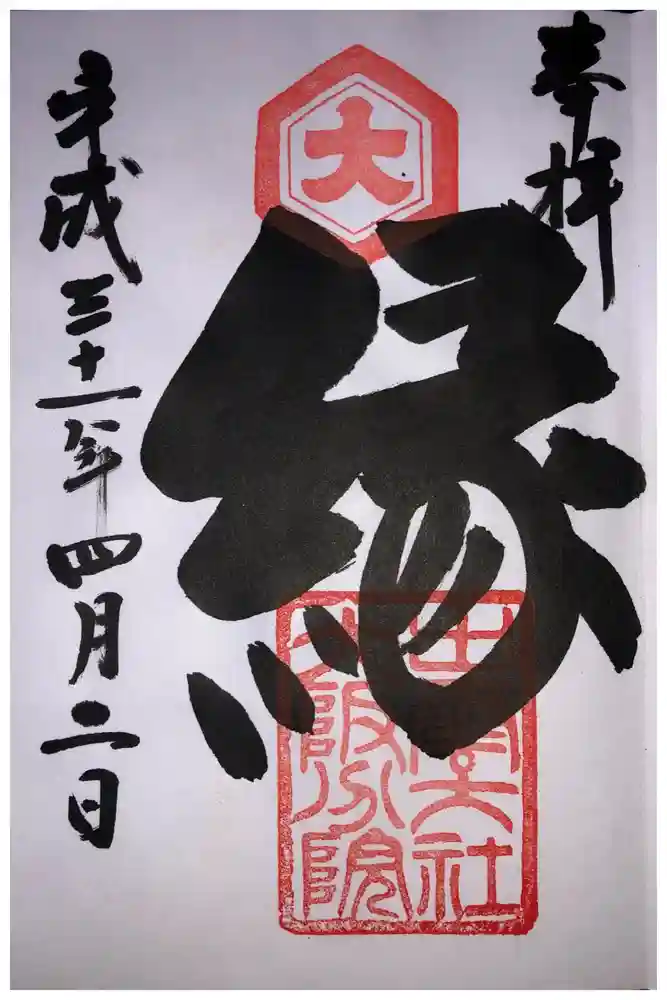 奉拝
大
縁
出雲大社
大阪分院
平成三十一年四月二日